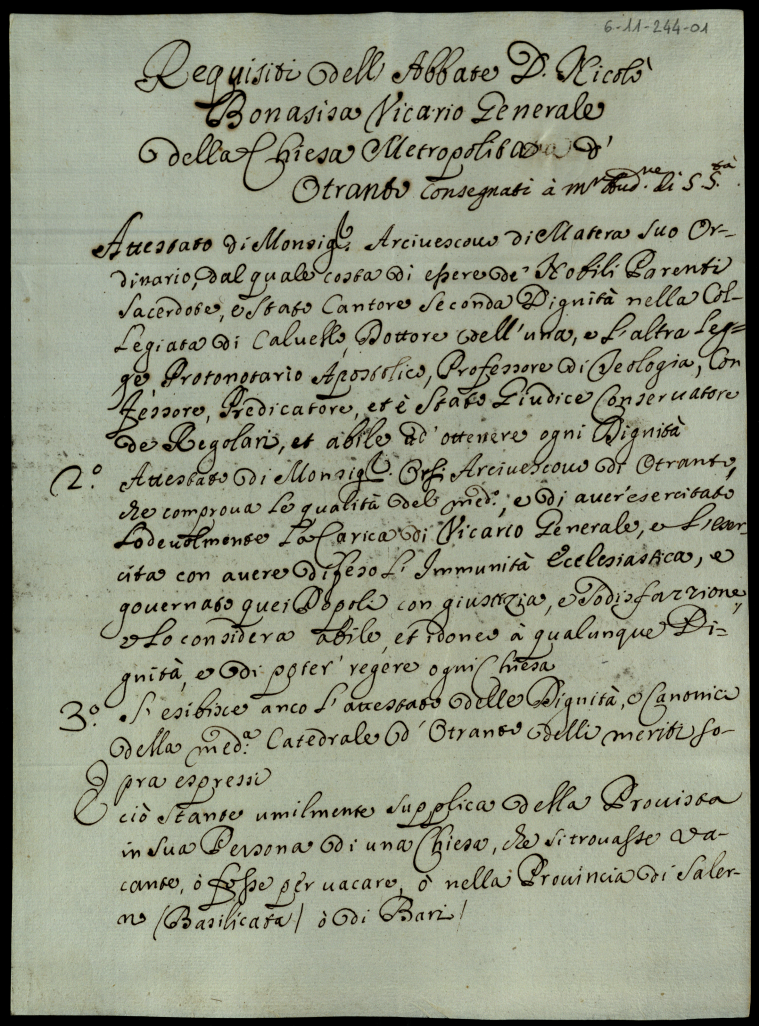 6-11-244-01
Requisiti dell Abbate D. Nicolò
Bonasisa Vicario Generale
della Chiesa Metropolitana d'
Otranto consegnati à di SS.tà
Attestato di Monsig.r Arciuescouo di Matera suo Or-
dinario, dal quale costa di essere de' Nobili Parenti
Sacerdote, e Stato Cantore Seconda Dignità nella Col-
legiata di Caluello, Dottore dell'una, e l'altra leg=
ge, Protonotario Apostolico, Professore di Teologia, Con
fessore, Predicatore, et è Stato Giudice Conseruatore
de Regolari, et abile ad' ottenere ogni Dignità
2.° Attestato di Monsig.r Orsi Arciuescouo di Otranto,
che comproua le qualità del med.°, e di auer' esercitato
lodeuolmente la Carica di Vicario Generale, e l'eser-
cita con auere difeso l'Immunità Ecclesiastica, e
gouernato quei Popoli con giustizia, e sodisfazzione,
e lo considera abile, et idoneo à qualunque Di-
gnità, e di poter' regere ogni Chiesa
3.° S'esibisce anco l'attestato delle Dignità, e Canonici
della med.a Catedrale d'Otranto delli meriti so-
pra espressi
E ciò stante umilmente supplica della Prouista
in sua Persona di una Chiesa, che si trouasse va-
cante, ò fosse per uacare, ò nella Prouincia di Saler-
no (Basilicata) ò di Bari/